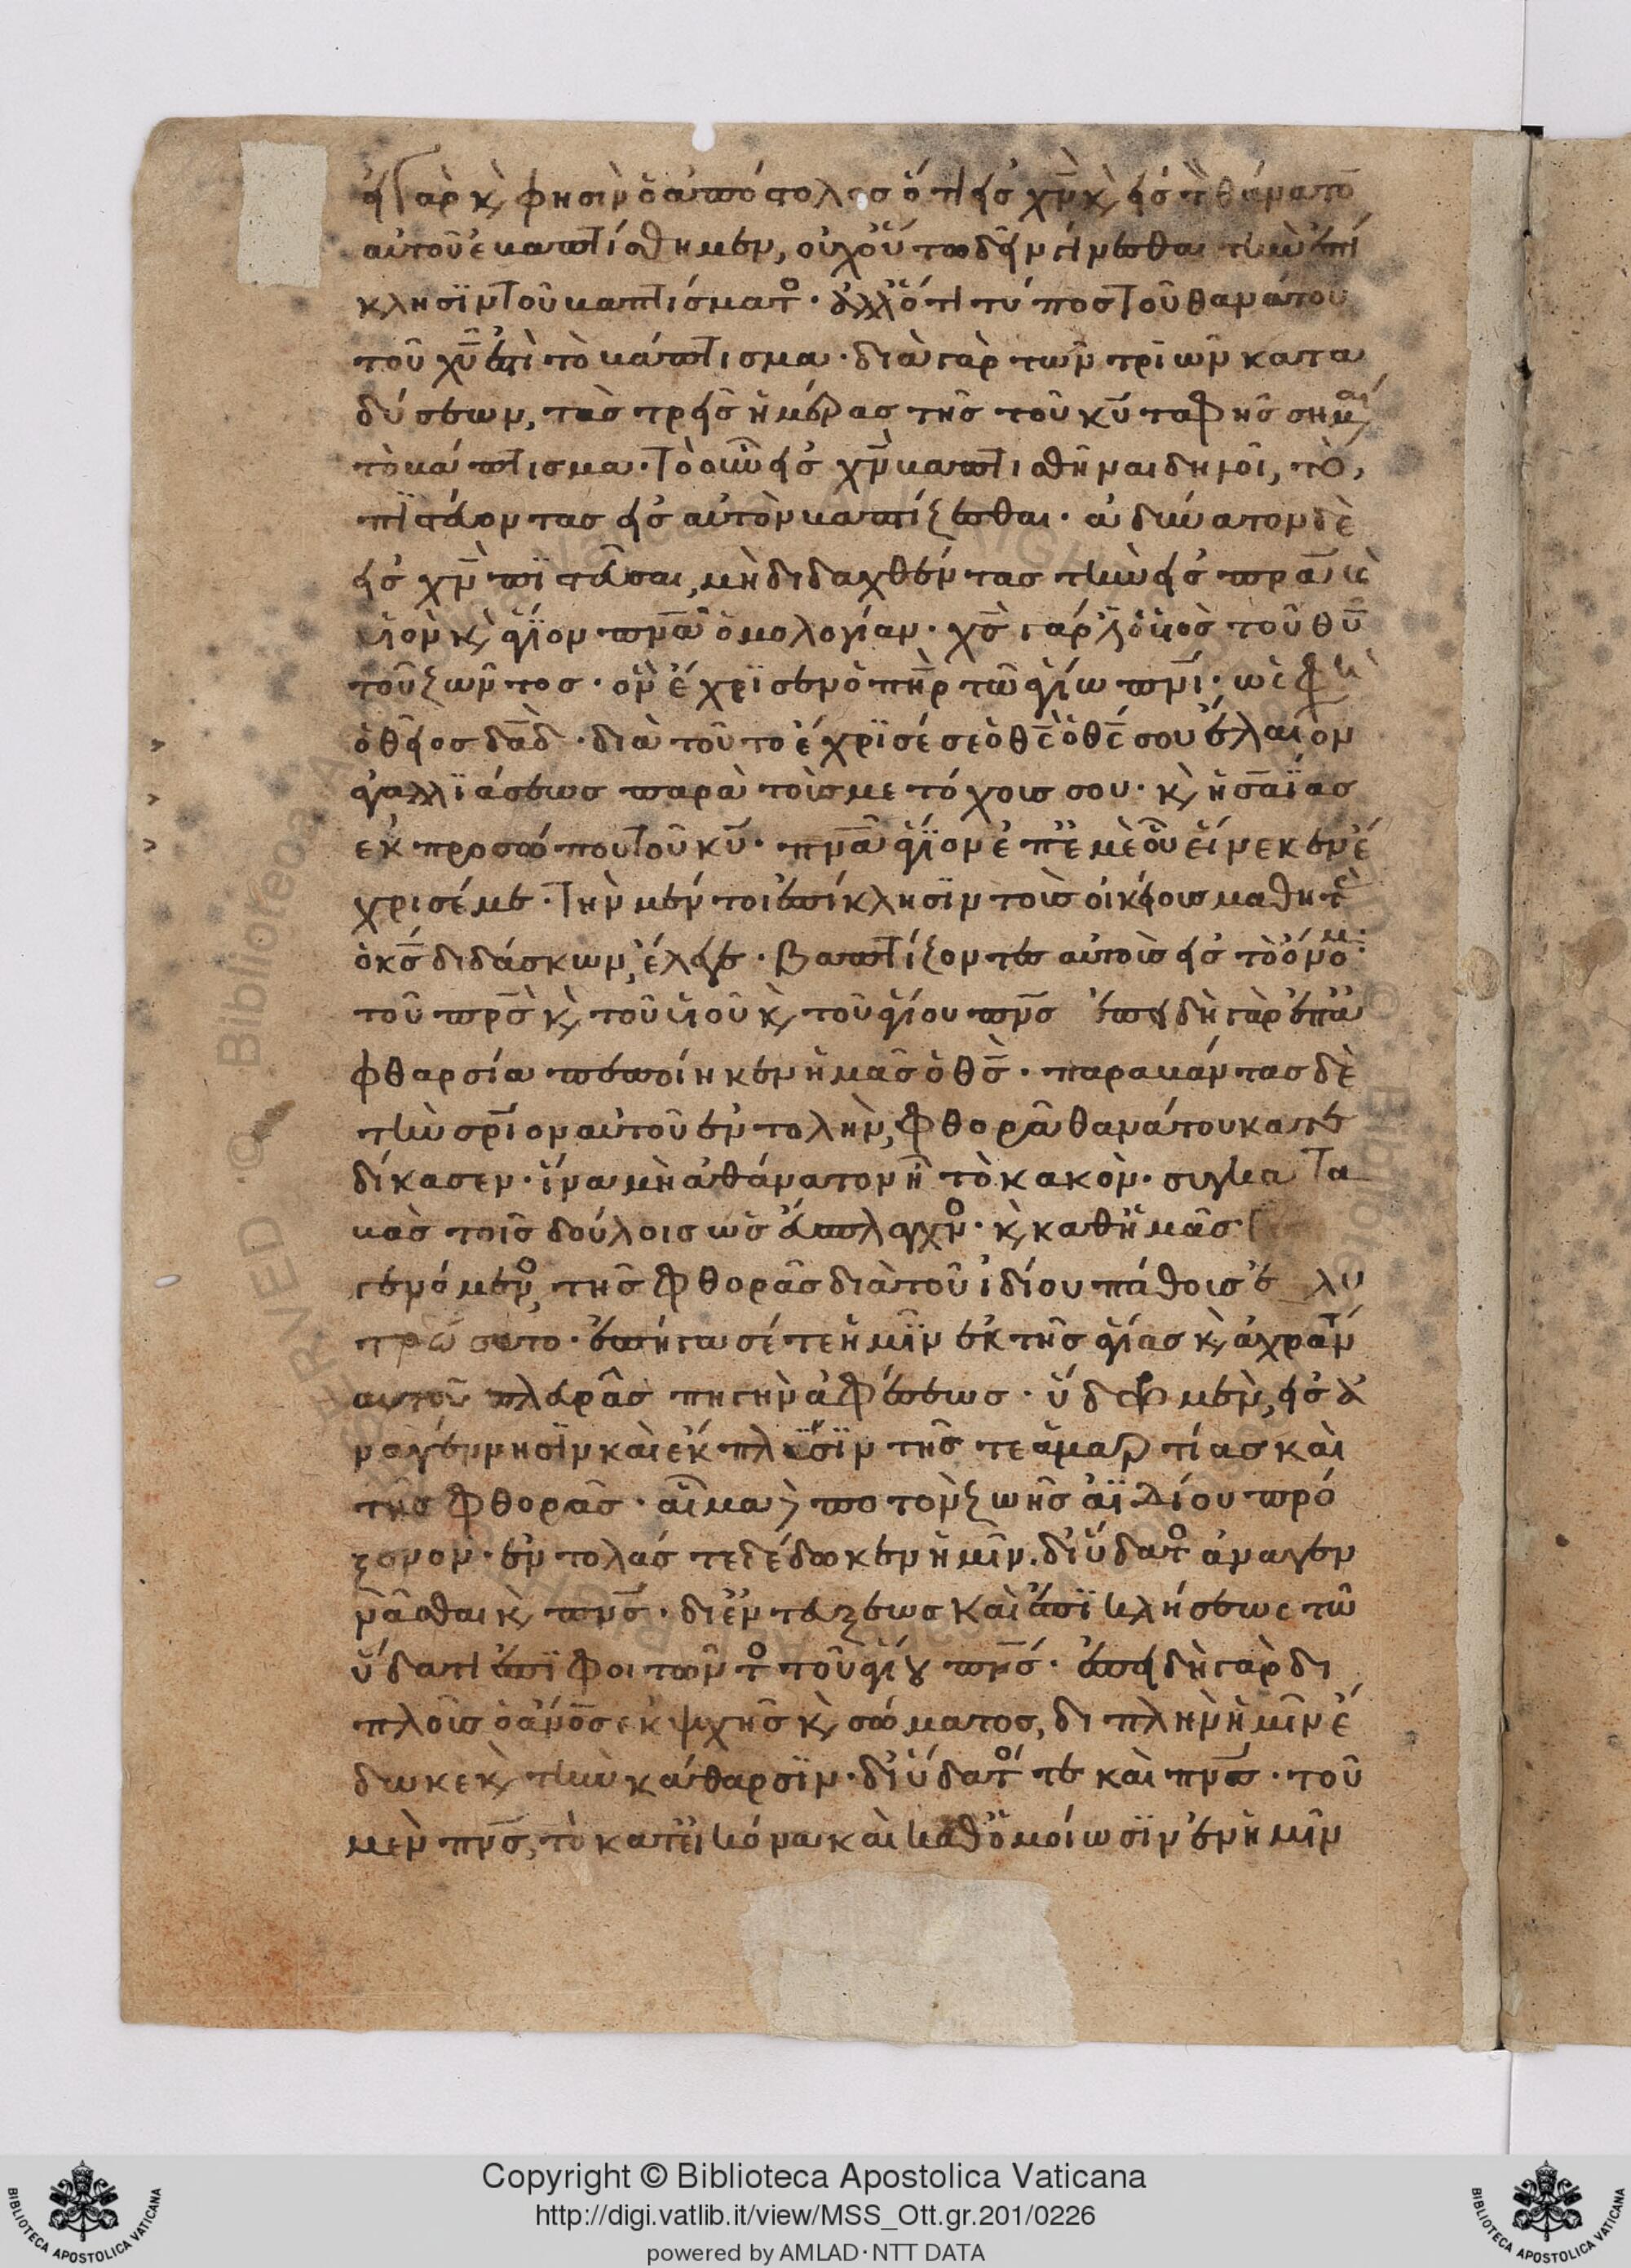 εἰ γὰρ κ(αὶ) φησὶν ὁ ἀπόστολος ὅτι εἰς χν κ(αὶ) εἰς τὸν θάνατον
αὐτοῦ ἐβαπτίσθημεν, οὐχ οὕτω δεῖν γίνεσθαι τὴν ἐπί
κλησιν τοῦ βαπτίσματος · ἀλλ' ὅτι τύπος τοῦ θανάτου
τοῦ χυ ἐστὶ τὸ βάπτισμα · διὰ γὰρ τῶν τριῶν κατα
δύσεων, τὰς τρεῖς ἡμέρας τῆς τοῦ κυ ταφῆς σημαί
τὸ βάπτισμα · τὸ οὖν εἰς χν βαπτισθῆναι δηλοῖ, τὸ,
πιστεύοντας εἰς αὐτὸν βαπτίζεσθαι · ἀδύνατον δὲ
εἰς χν πιστεῦσαι, μὴ διδαχθέντας τὴν εἰς πρα κ(αὶ)
υἱὸν κ(αὶ) ἅγιον πνα ὁμολογίαν · χς γάρ ἐστιν ὁ υἱὸς τοῦ θυ
τοῦ ζῶντος · ὃν ἔχρισεν ὁ πηρ τῷ ἁγίω πνι · ὥς φη
ὁ θεῖος δαδ · διὰ τοῦτο ἔχρισέ σε ὁ θς ὁ θς σου ἔλαιον
ἀγαλλιάσεως παρὰ τοὺς μετόχους σου · κ(αὶ) ἡσαΐας
ἐκ προσώπου τοῦ κυ · πνα ἅγιον ἐπ' ἐμὲ οὗ εἵνεκεν ἔ
χρισέ με · Τὴν μέντοι ἐπίκλησιν τοὺς οἰκείους μαθητὰς
ὁ κς διδάσκων, ἔλεγε · Βαπτίζοντες αὐτοὺς εἰς τὸ ὄνομ
τοῦ πρς κ(αὶ) τοῦ υἱοῦ κ(αὶ) τοῦ ἁγίου πνς ἐπειδὴ γὰρ ἐπ' ἀ
φθαρσία πεποίηκεν ἡμᾶς ὁ θς · παραβάντας δὲ
τὴν σριον αὐτοῦ ἐντολὴν, φθορᾶ θανάτου κατε
δίκασεν · ἵνα μὴ ἀθάνατον ἦ τὸ κακὸν · συγκατα
βὰς τοῖς δούλοις ὡς εὔσπλαγχνος · κ(αὶ) καθ' ἡμᾶς
γενόμενος, τῆς φθορᾶς διὰ τοῦ ἰδίου πάθους ἐλυ
τρώσατο · ἐπήγασέ τε ἡμῖν ἐκ τῆς ἁγίας κ(αὶ) ἀχράντ
αὐτοῦ πλευρᾶς πηγὴν ἀφέσεως · ὕδωρ μὲν, εἰς ἀ
ναγέννησιν καὶ ἔκπλυσιν τῆς τε ἁμαρτίας καὶ
τῆς φθορᾶς · αἷμα, ποτὸν ζωῆς ἀϊδίου πρό
ξενον · ἐντολάς τε δέδωκεν ἡμῖν. δι' ὕδατος ἀναγεν
νᾶσθαι κ(αὶ) πνς · δι' ἐντεύξεως καὶ ἐπικλήσεως τῶ
ὕδατι ἐπιφοιτῶντος τοῦ ἁγίου πνς · ἐπειδὴ γὰρ δι
πλοῦς ὁ ανος ἐκ ψυχῆς κ(αὶ) σώματος, διπλὴν ἡμῖν ἔ
δωκε κ(αὶ) τὴν κάθαρσιν · δι' ὕδατός τε καὶ πνς · τοῦ
μὲν πνς, τὸ κατ' εἰκόνα καὶ καθ' ὁμοίωσιν ἐν ἡμῖν
Copyright © Biblioteca Apostolica Vaticana
http://digi.vatlib.it/view/MSS_Ott.gr.201/0226
powered by AMLAD·NTT DATA
BIBLIOTECA APOSTOLICA VATICANA
BIBLIOTECA APOSTOLICA VATICANA